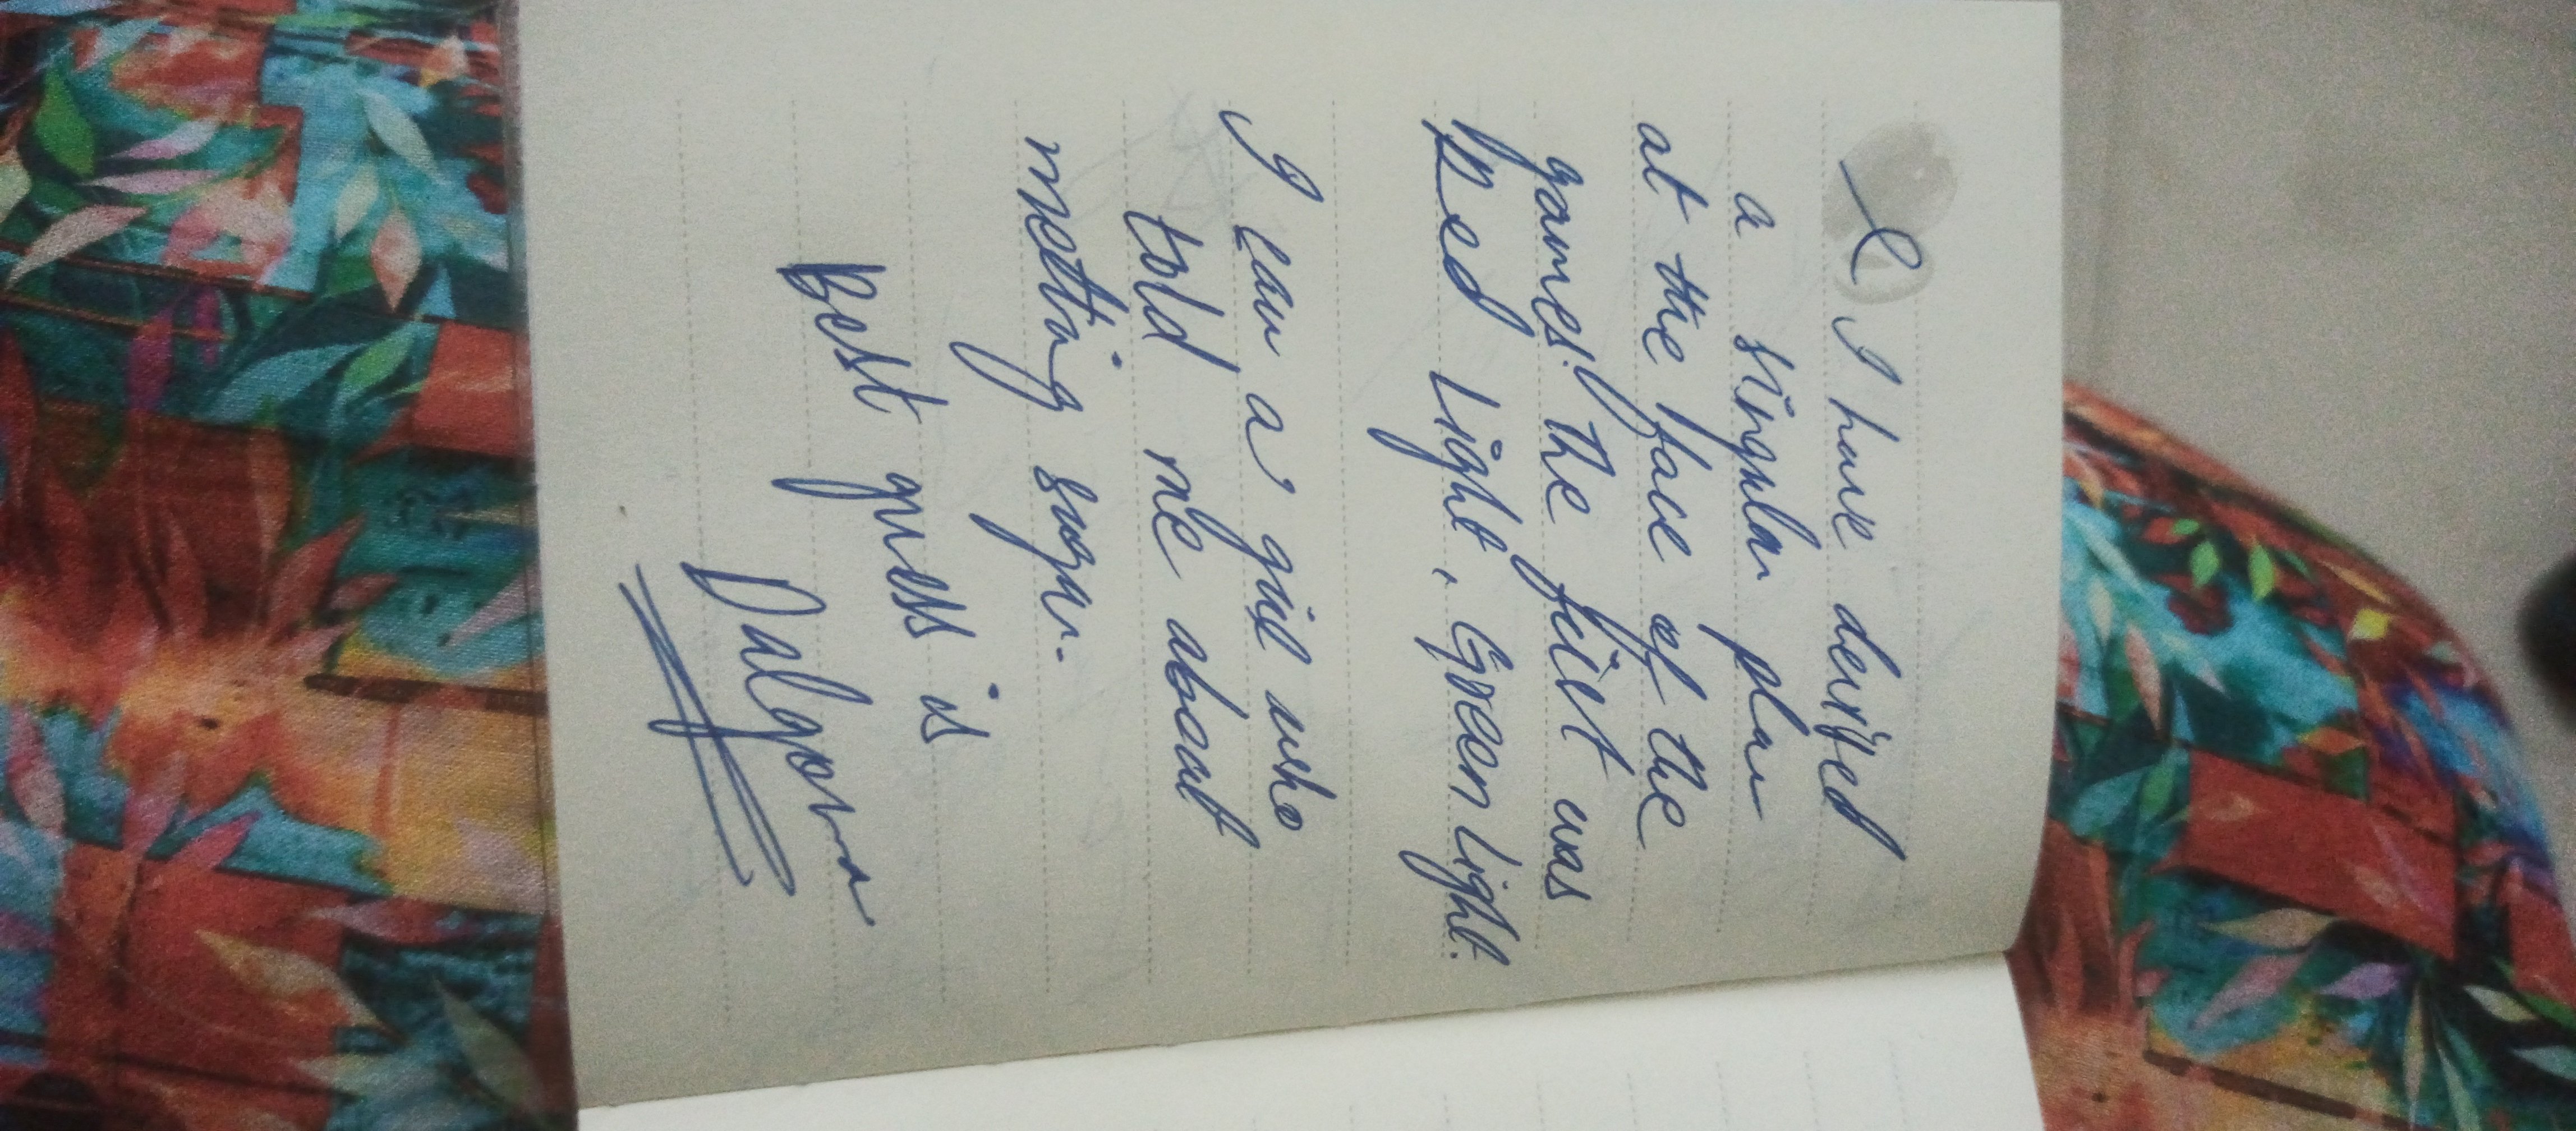 I have derived
a singular plan
at the face of the
games. the first was
Red Light, Green Light.
I saw a girl who
told me about
melting sugar.
Best guess is
Dalgona